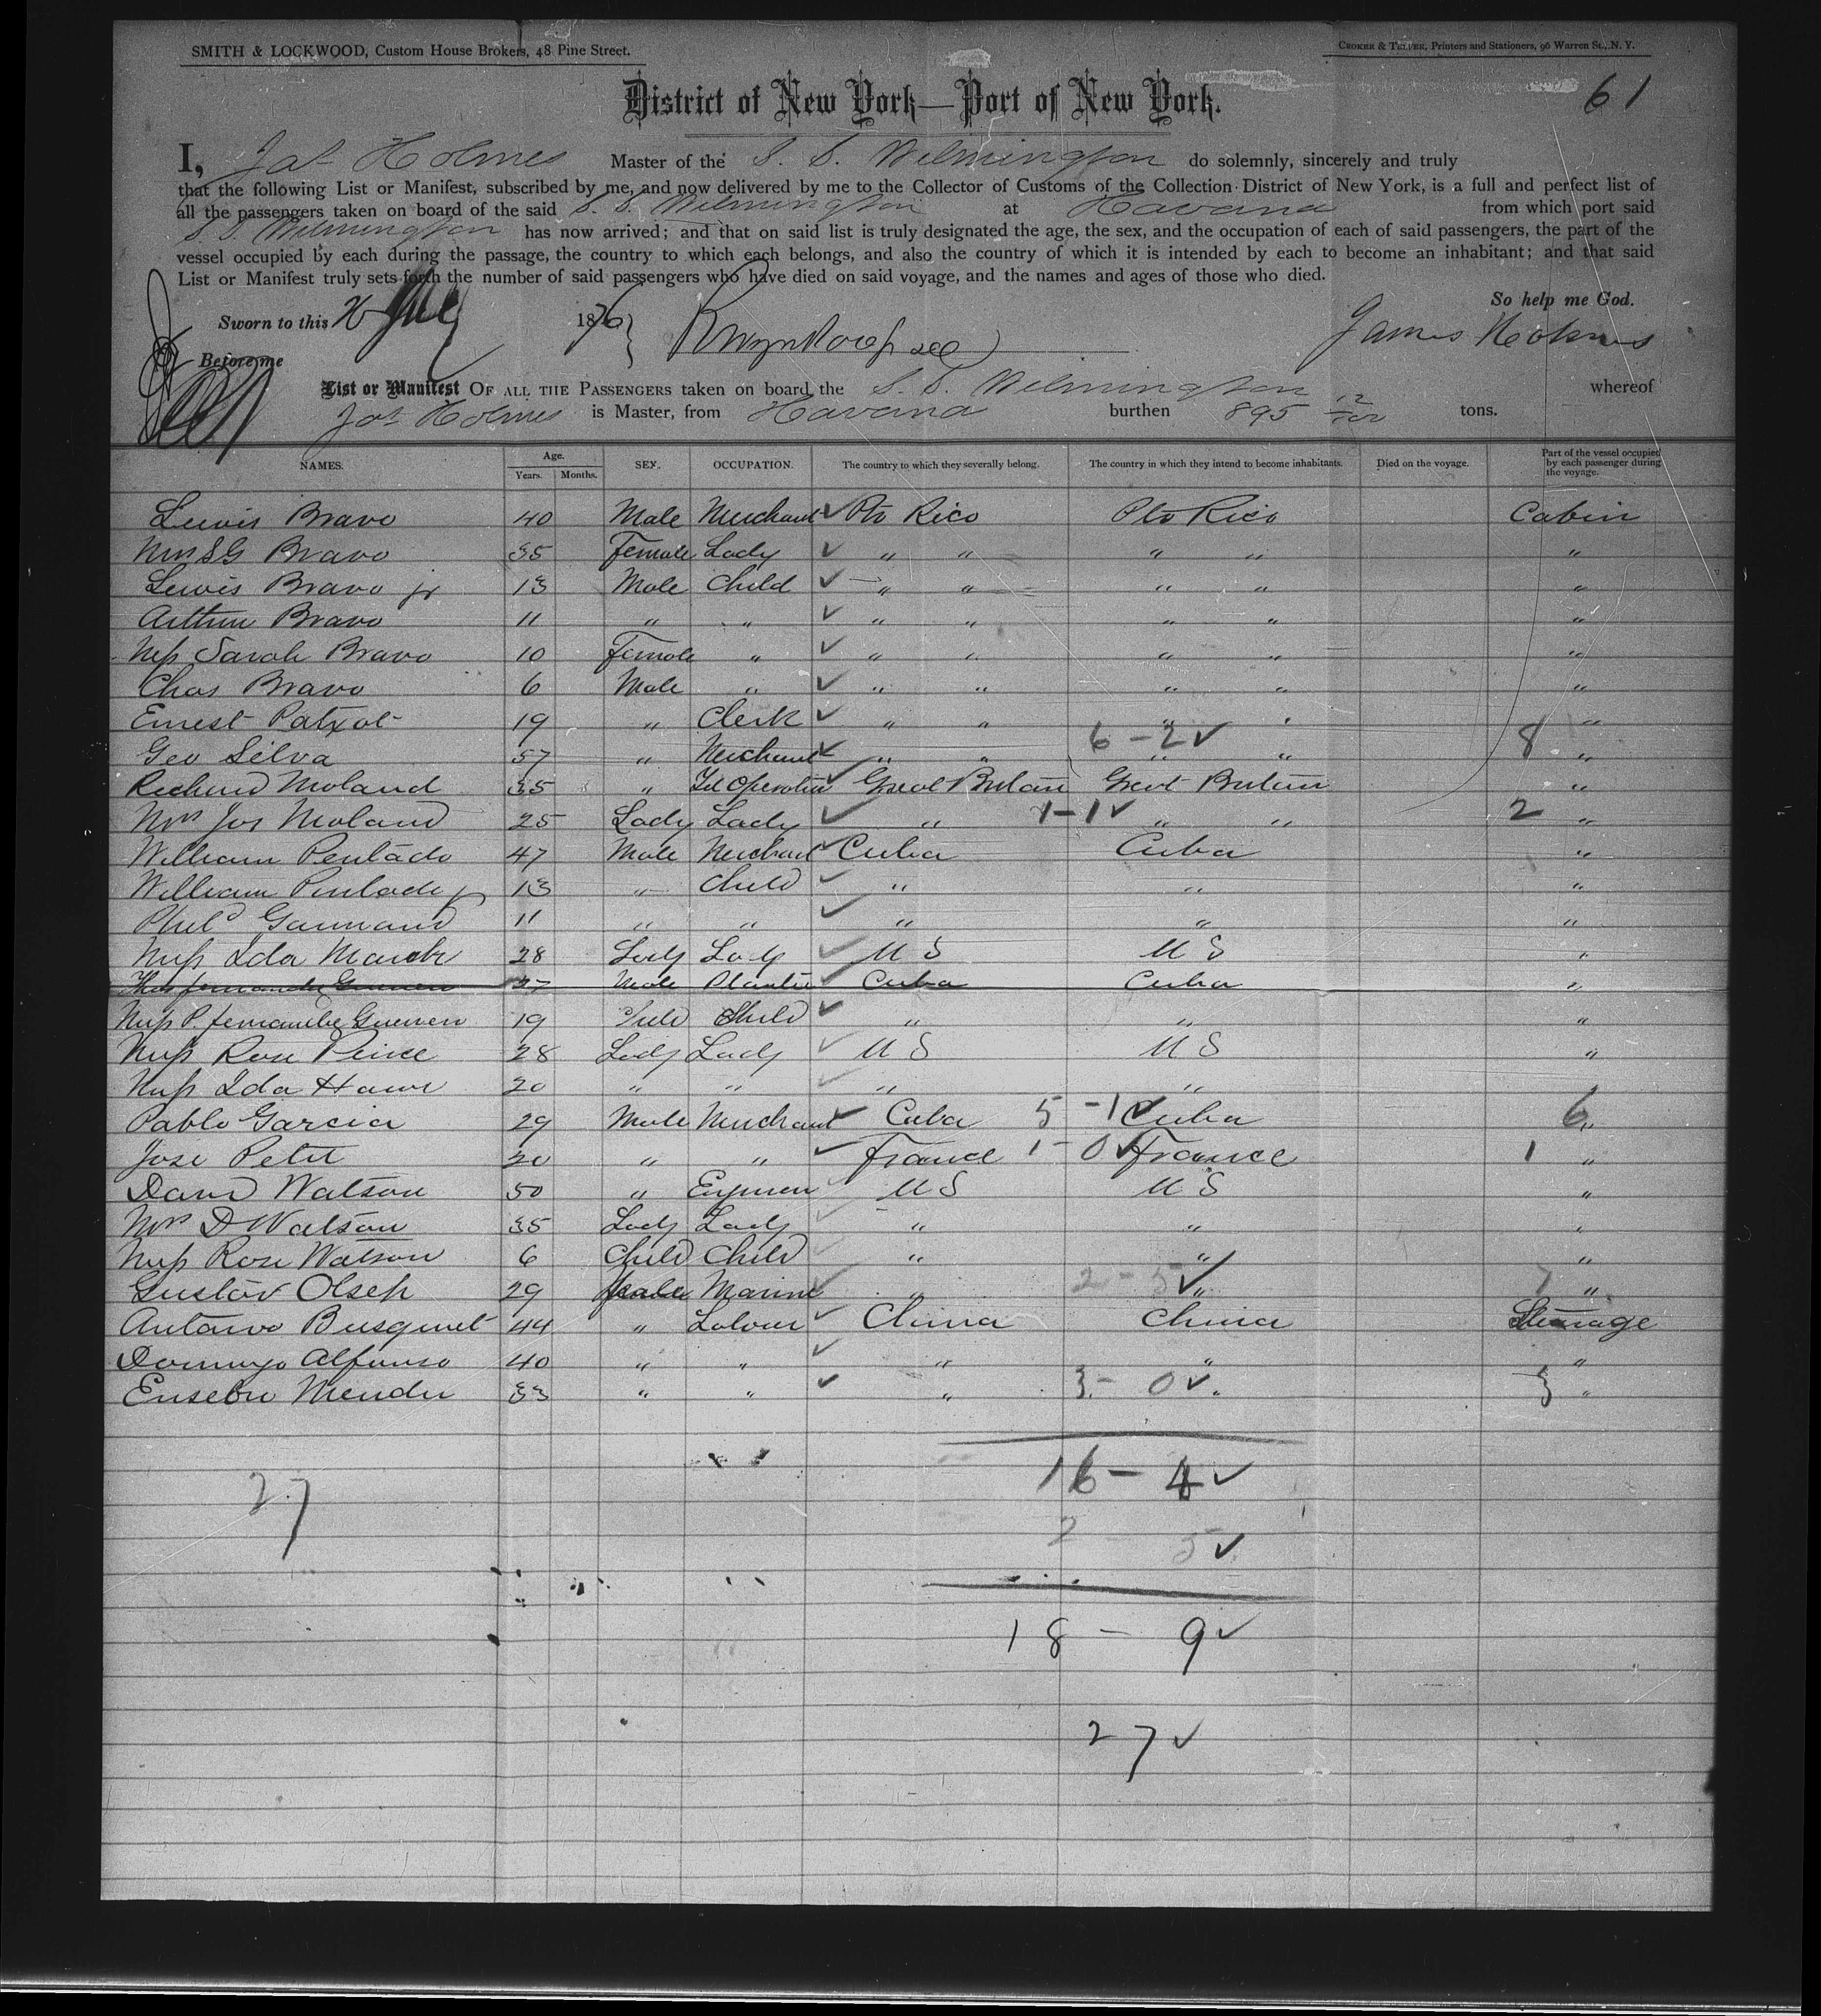 SMITH & LOCKWOOD, Custom House Brokers, 48 Pine Street.
CROKER & TELFER, Printers and Stationers, 96 Warren St., N. Y.
District of New York—Port of New York.
61
I, Jas Holmes Master of the S. S. Wilmington do solemnly, sincerely and truly
that the following List or Manifest, subscribed by me, and now delivered by me to the Collector of Customs of the Collection District of New York, is a full and perfect list of
all the passengers taken on board of the said S. S. Wilmington at Havana from which port said
S. S. Wilmington has now arrived; and that on said list is truly designated the age, the sex, and the occupation of each of said passengers, the part of the
vessel occupied by each during the passage, the country to which each belongs, and also the country of which it is intended by each to become an inhabitant; and that said
List or Manifest truly sets forth the number of said passengers who have died on said voyage, and the names and ages of those who died.
So help me God.
Sworn to this 1876
James Holmes
Before me
List or Manifest OF ALL THE PASSENGERS taken on board the S. S. Wilmington whereof
Jas Holmes is Master, from Havana burthen 895 12/100 tons.
NAMES. Age. Years. Months. SEX. OCCUPATION. The country to which they severally belong. The country in which they intend to become inhabitants. Died on the voyage. Part of the vessel occupied by each passenger during the voyage.
Lewis Bravo 40 Male Merchant ✓ Pto Rico Pto Rico Cabin
Mrs S G Bravo 35 Female Lady ✓ " " " " "
Lewis Bravo jr 13 Male Child ✓ " " " " "
Arthur Bravo 11 " " ✓ " " " " "
Miss Sarah Bravo 10 Female " ✓ " " " " "
Chas Bravo 6 Male " ✓ " " " " "
Ernest Patxot 19 " Clerk ✓ " " " " "
Geo Silva 57 " Merchant ✓ " " 6 - 2 ✓ " " 8 "
Richard Moland 35 " Tel Operator ✓ Great Britain Great Britain "
Mrs Jos Moland 25 Lady Lady ✓ " 1 - 1 ✓ " " 2 "
William Pentado 47 Male Merchant ✓ Cuba Cuba "
William Pentado jr 13 " Child ✓ " " "
Phil 11 " " ✓ " " "
Miss Ida 28 Lady Lady ✓ U S U S "
37 Male Planter ✓ Cuba Cuba "
Miss P. 19 Child Child ✓ " " "
Miss Rose 28 Lady Lady ✓ U S U S "
Miss Ida 20 " " ✓ " "
Pablo Garcia 29 Male Merchant ✓ Cuba 5 - 1 ✓ Cuba 6 "
Jose Petit 20 " " ✓ France 1 - 0 ✓ France 1 "
David Watson 50 " ✓ U S U S "
Mrs D Watson 35 Lady Lady ✓ " " "
Miss Rose Watson 6 Child Child ✓ " " "
Gustav Olsen 29 Male Marine ✓ " 2 - 5 ✓ " 7 "
Antonio Busquet 44 " Labour ✓ China China Steerage
Domingo Alfonso 40 " " ✓ " " "
Eusebio 33 " " ✓ " 3 - 0 ✓ " 3 "
16 - 4 ✓
27
2 5 ✓
18 - 9 ✓
27 ✓